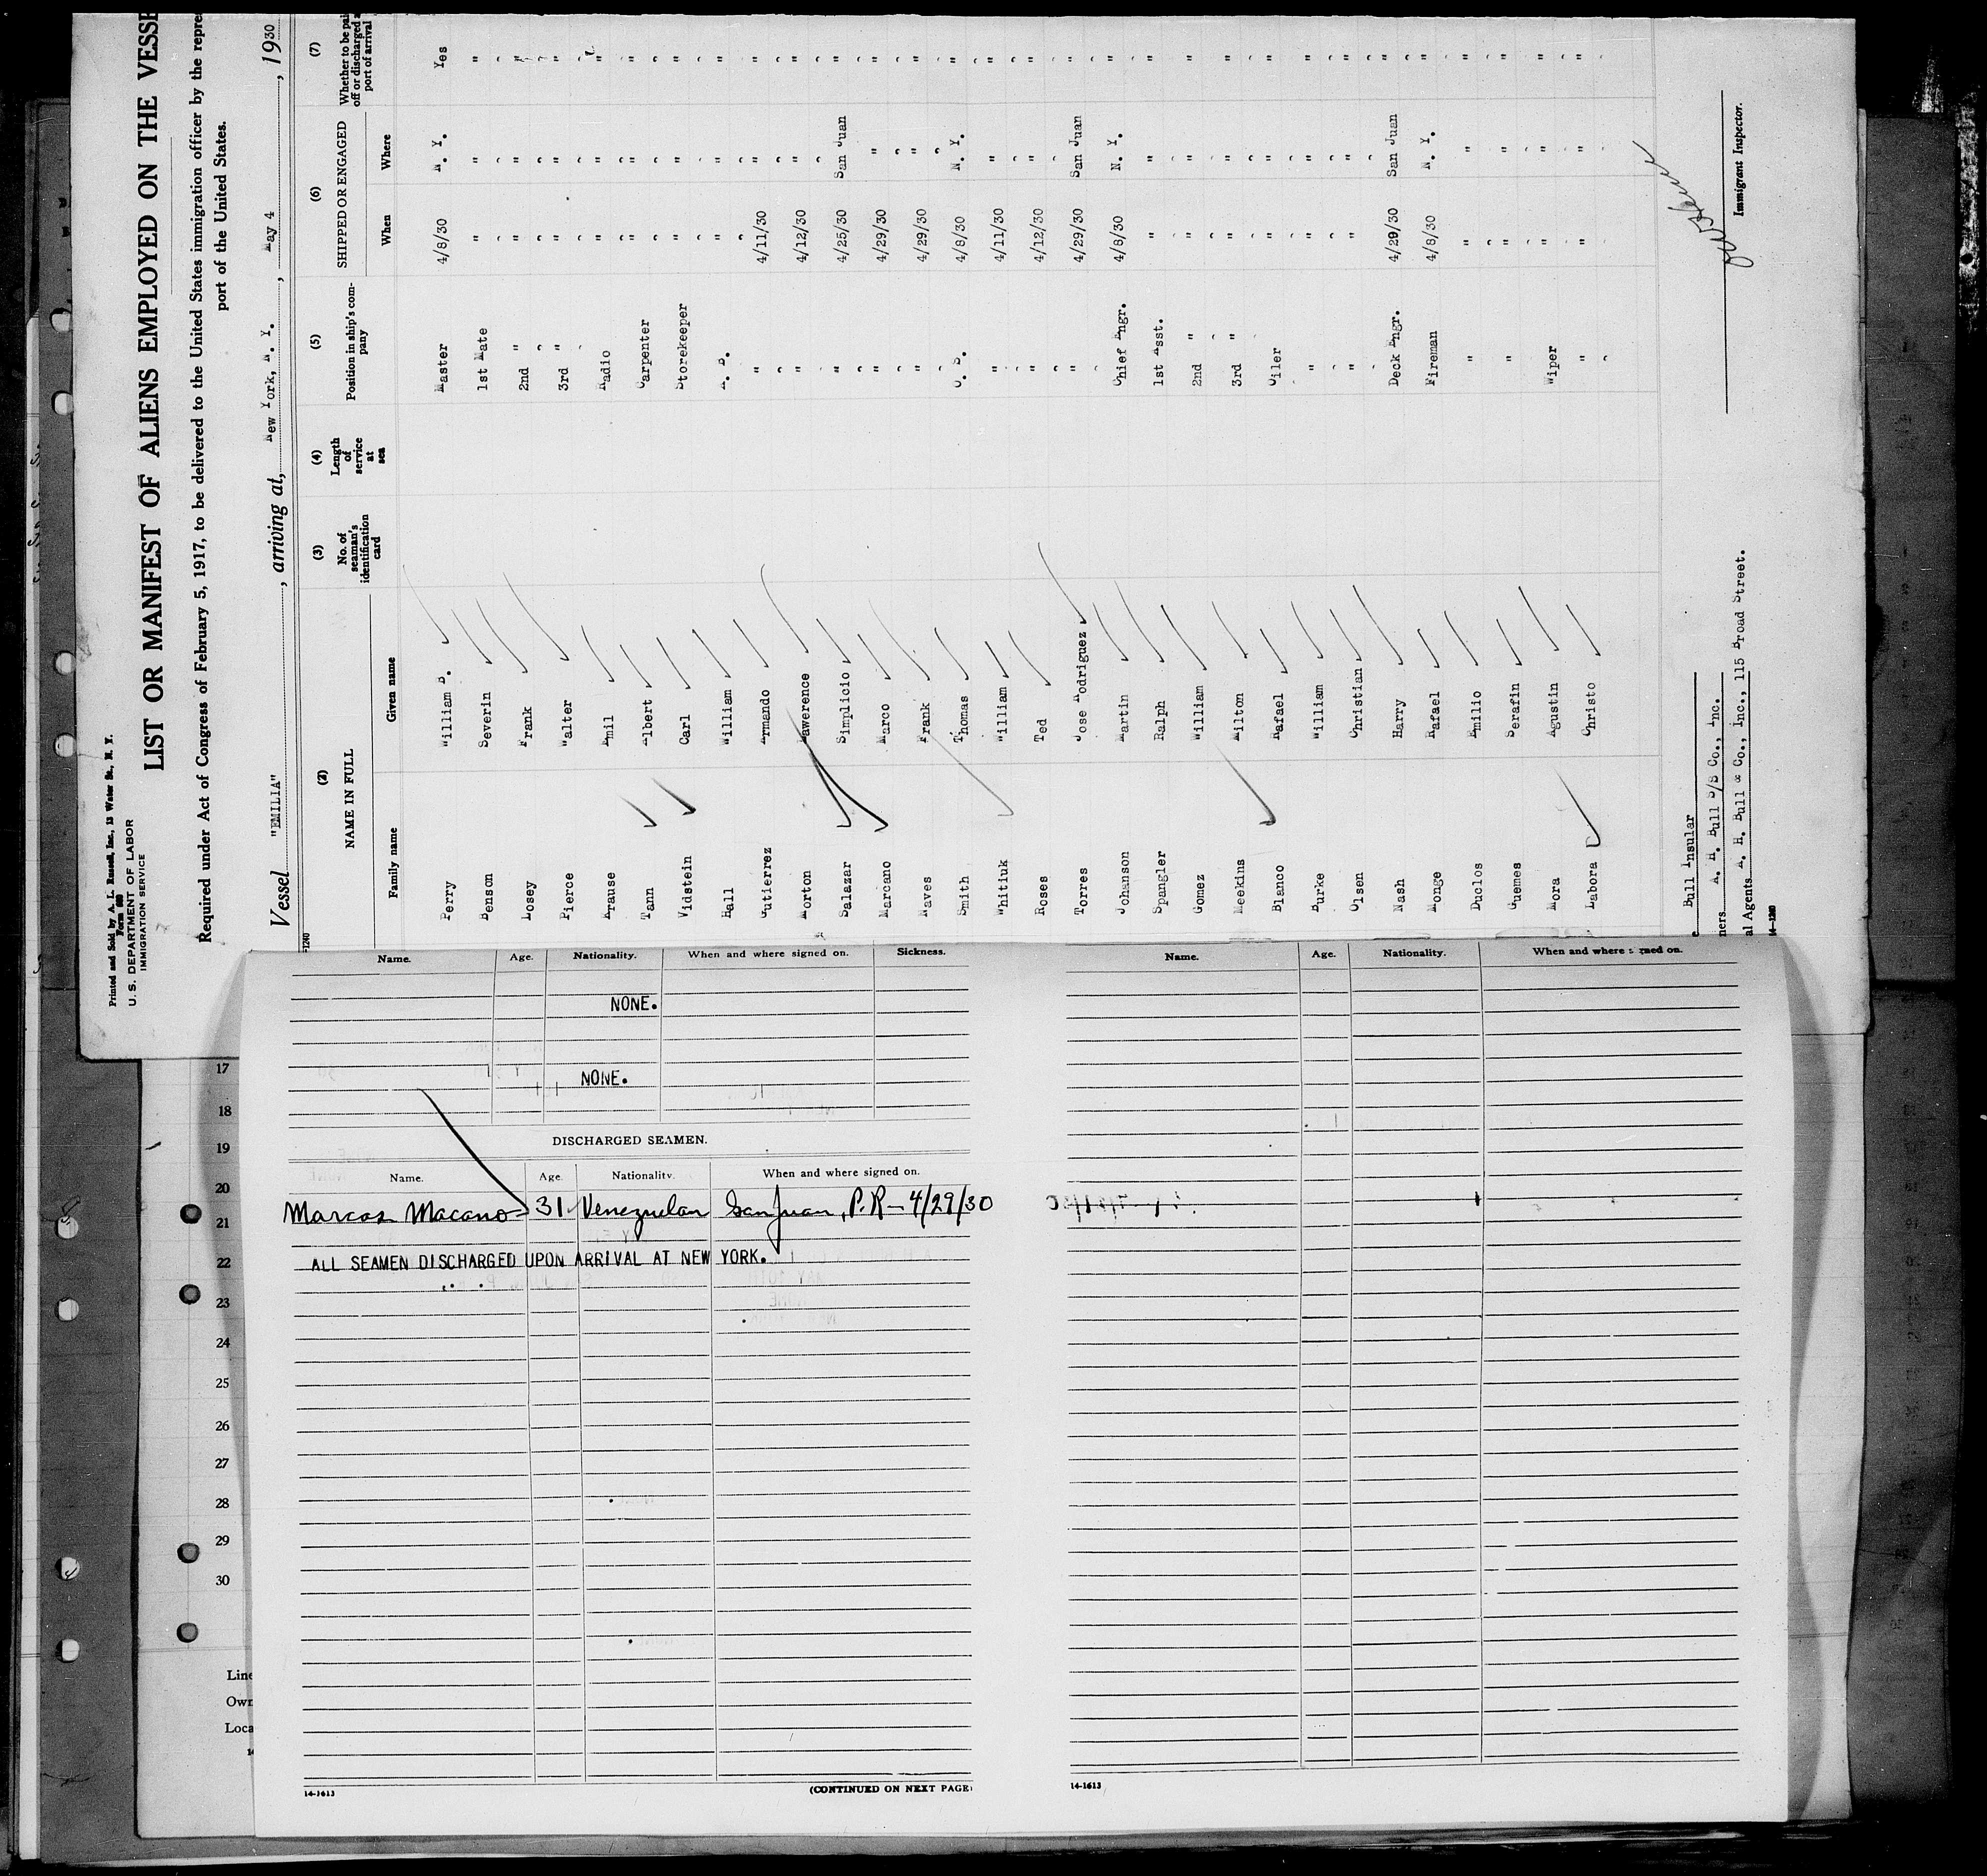 Printed and Sold by A. L. Russell, Inc., 13 Water St., N. Y.
Form 680
U. S. DEPARTMENT OF LABOR
IMMIGRATION SERVICE
LIST OR MANIFEST OF ALIENS EMPLOYED ON THE VESSE
Required under Act of Congress of February 5, 1917, to be delivered to the United States immigration officer by the repre
port of the United States.
Vessel "EMILIA", arriving at, New York, N. Y., May 4, 1930
(2) (3) (4) (5) (6) (7)
NAME IN FULL No. of seaman's identification card Length of service at sea Position in ship's company SHIPPED OR ENGAGED Whether to be pai off or discharged a port of arrival
Family name Given name When Where
Perry William B. Master 4/8/30 N. Y. Yes
Benson Severin 1st Mate " " "
Losey Frank 2nd " " " "
Pierce Walter 3rd " " " "
Krause Emil Radio " " "
Tann Albert Carpenter " " "
Vidstein Carl Storekeeper " " "
Hall William A. B. " " "
Gutierrez Armando " 4/11/30 " "
Morton Lawerence " 4/12/30 " "
Salazar Simplicio " 4/25/30 San Juan "
Marcano Marco " 4/29/30 " "
Naves Frank " 4/29/30 " "
Smith Thomas O. S. 4/8/30 N. Y. "
Whitiuk William " 4/11/30 " "
Roses Ted " 4/12/30 " "
Torres Jose Rodriguez " 4/29/30 San Juan "
Johanson Martin Chief Engr. 4/8/30 N. Y. "
Spangler Ralph 1st Asst. " " "
Gomez William 2nd " " " "
Meekins Milton 3rd " " " "
Blanco Rafael Oiler " " "
Burke William " " " "
Olsen Christian " " " "
Nash Harry Deck Engr. 4/29/30 San Juan "
Monge Rafael Fireman 4/8/30 N. Y. "
Duclos Emilio " " " "
Guemes Serafin " " " "
Mora Agustin Wiper " " "
Labora Christo " " " "
e Bull Insular
ners A. H. Bull S/S Co., Inc.
al Agents A. H. Bull & Co., Inc., 115 Broad Street.
Immigrant Inspector.
14-1240
Name. Age. Nationality. When and where signed on. Sickness.
NONE.
NONE.
DISCHARGED SEAMEN.
Name. Age. Nationality. When and where signed on.
Marcos Macano 31 Venezuelan San Juan, P.R - 4/29/30
ALL SEAMEN DISCHARGED UPON ARRIVAL AT NEW YORK.
(CONTINUED ON NEXT PAGE)
14-1613
Name. Age. Nationality. When and where signed on.
14-1613
17
18
19
20
21
22
23
24
25
26
27
28
29
30
Line
Own
Loca